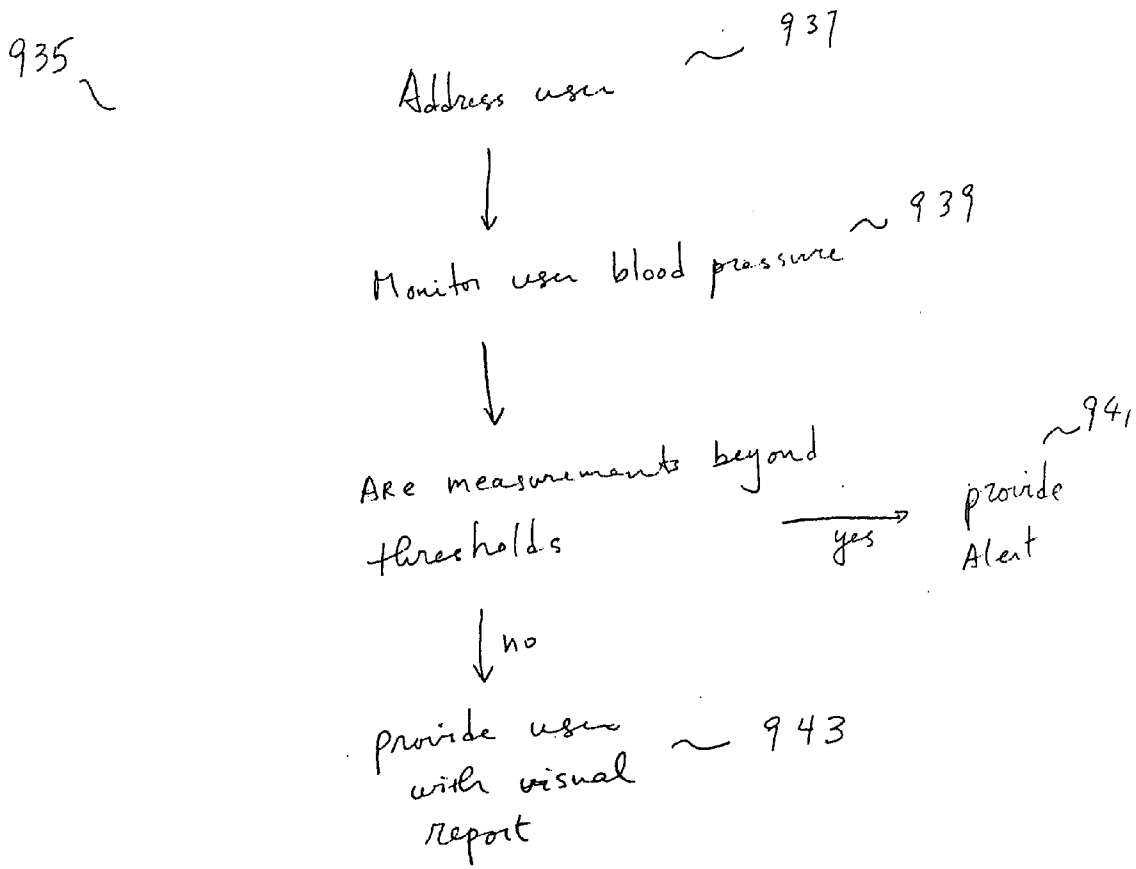 935
937
Address user
939
Monitor user blood pressure
ARe measurements beyond
thresholds
yes
941
provide
Alert
no
provide user
with visual
report
943